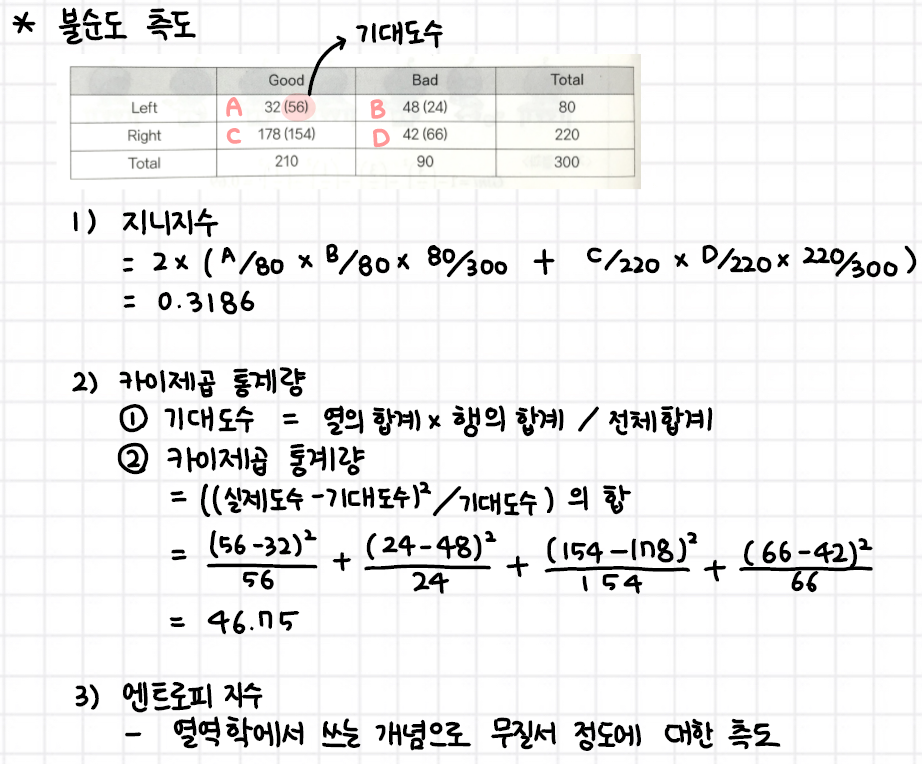 * 불순도 측도
기대도수
Good Bad Total
Left A 32 (56) B 48 (24) 80
Right C 178 (154) D 42 (66) 220
Total 210 90 300
1) 지니지수
= 2 x ( A/80 x B/80 x 80/300 + C/220 x D/220 x 220/300 )
= 0.3186
2) 카이제곱 통계량
① 기대도수 = 열의 합계 x 행의 합계 / 전체합계
② 카이제곱 통계량
= ((실제도수-기대도수)²/기대도수) 의 합
= (56-32)²/56 + (24-48)²/24 + (154-178)²/154 + (66-42)²/66
= 46.75
3) 엔트로피 지수
- 열역학에서 쓰는 개념으로 무질서 정도에 대한 측도